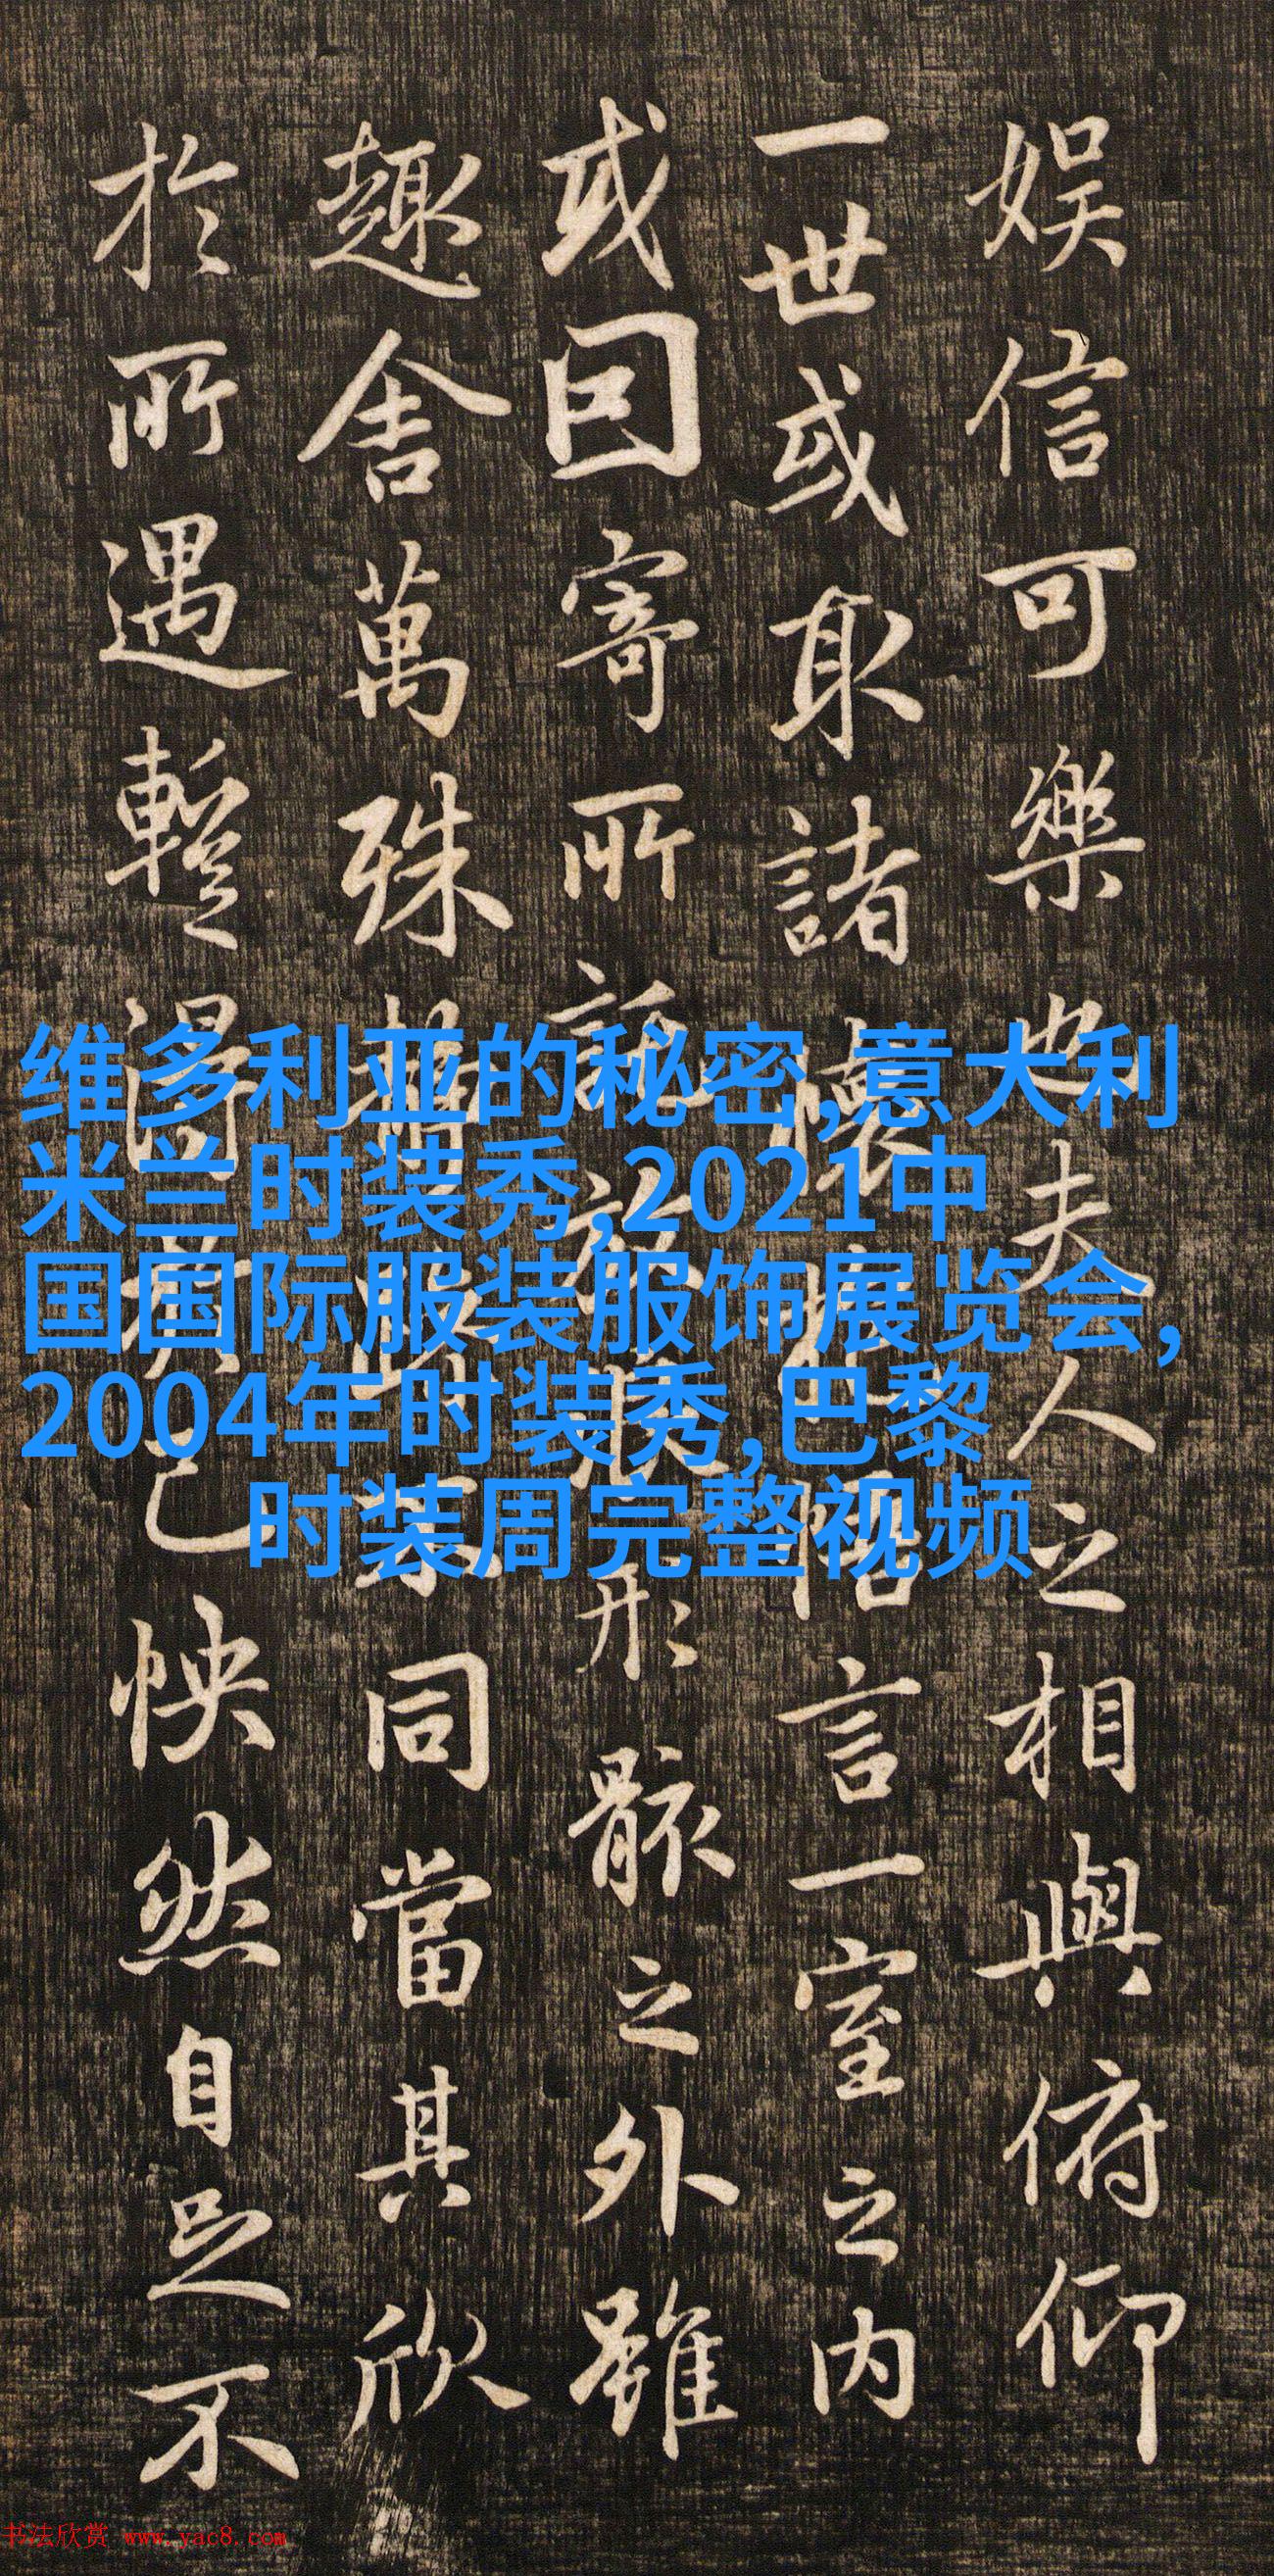 娱信可樂也夫人之相與俯仰
一世或取諸懷抱悟言一室之内
或因寄所託放浪形骸之外雖
趣舍萬殊静躁不同當其欣
於所遇暫得於己怏然自足不
维多利亚的秘密,意大利
米兰时装秀,2021中
国国际服装服饰展览会,
2004年时装秀,巴黎
时装周完整视频
书法欣赏 www.yac8.com